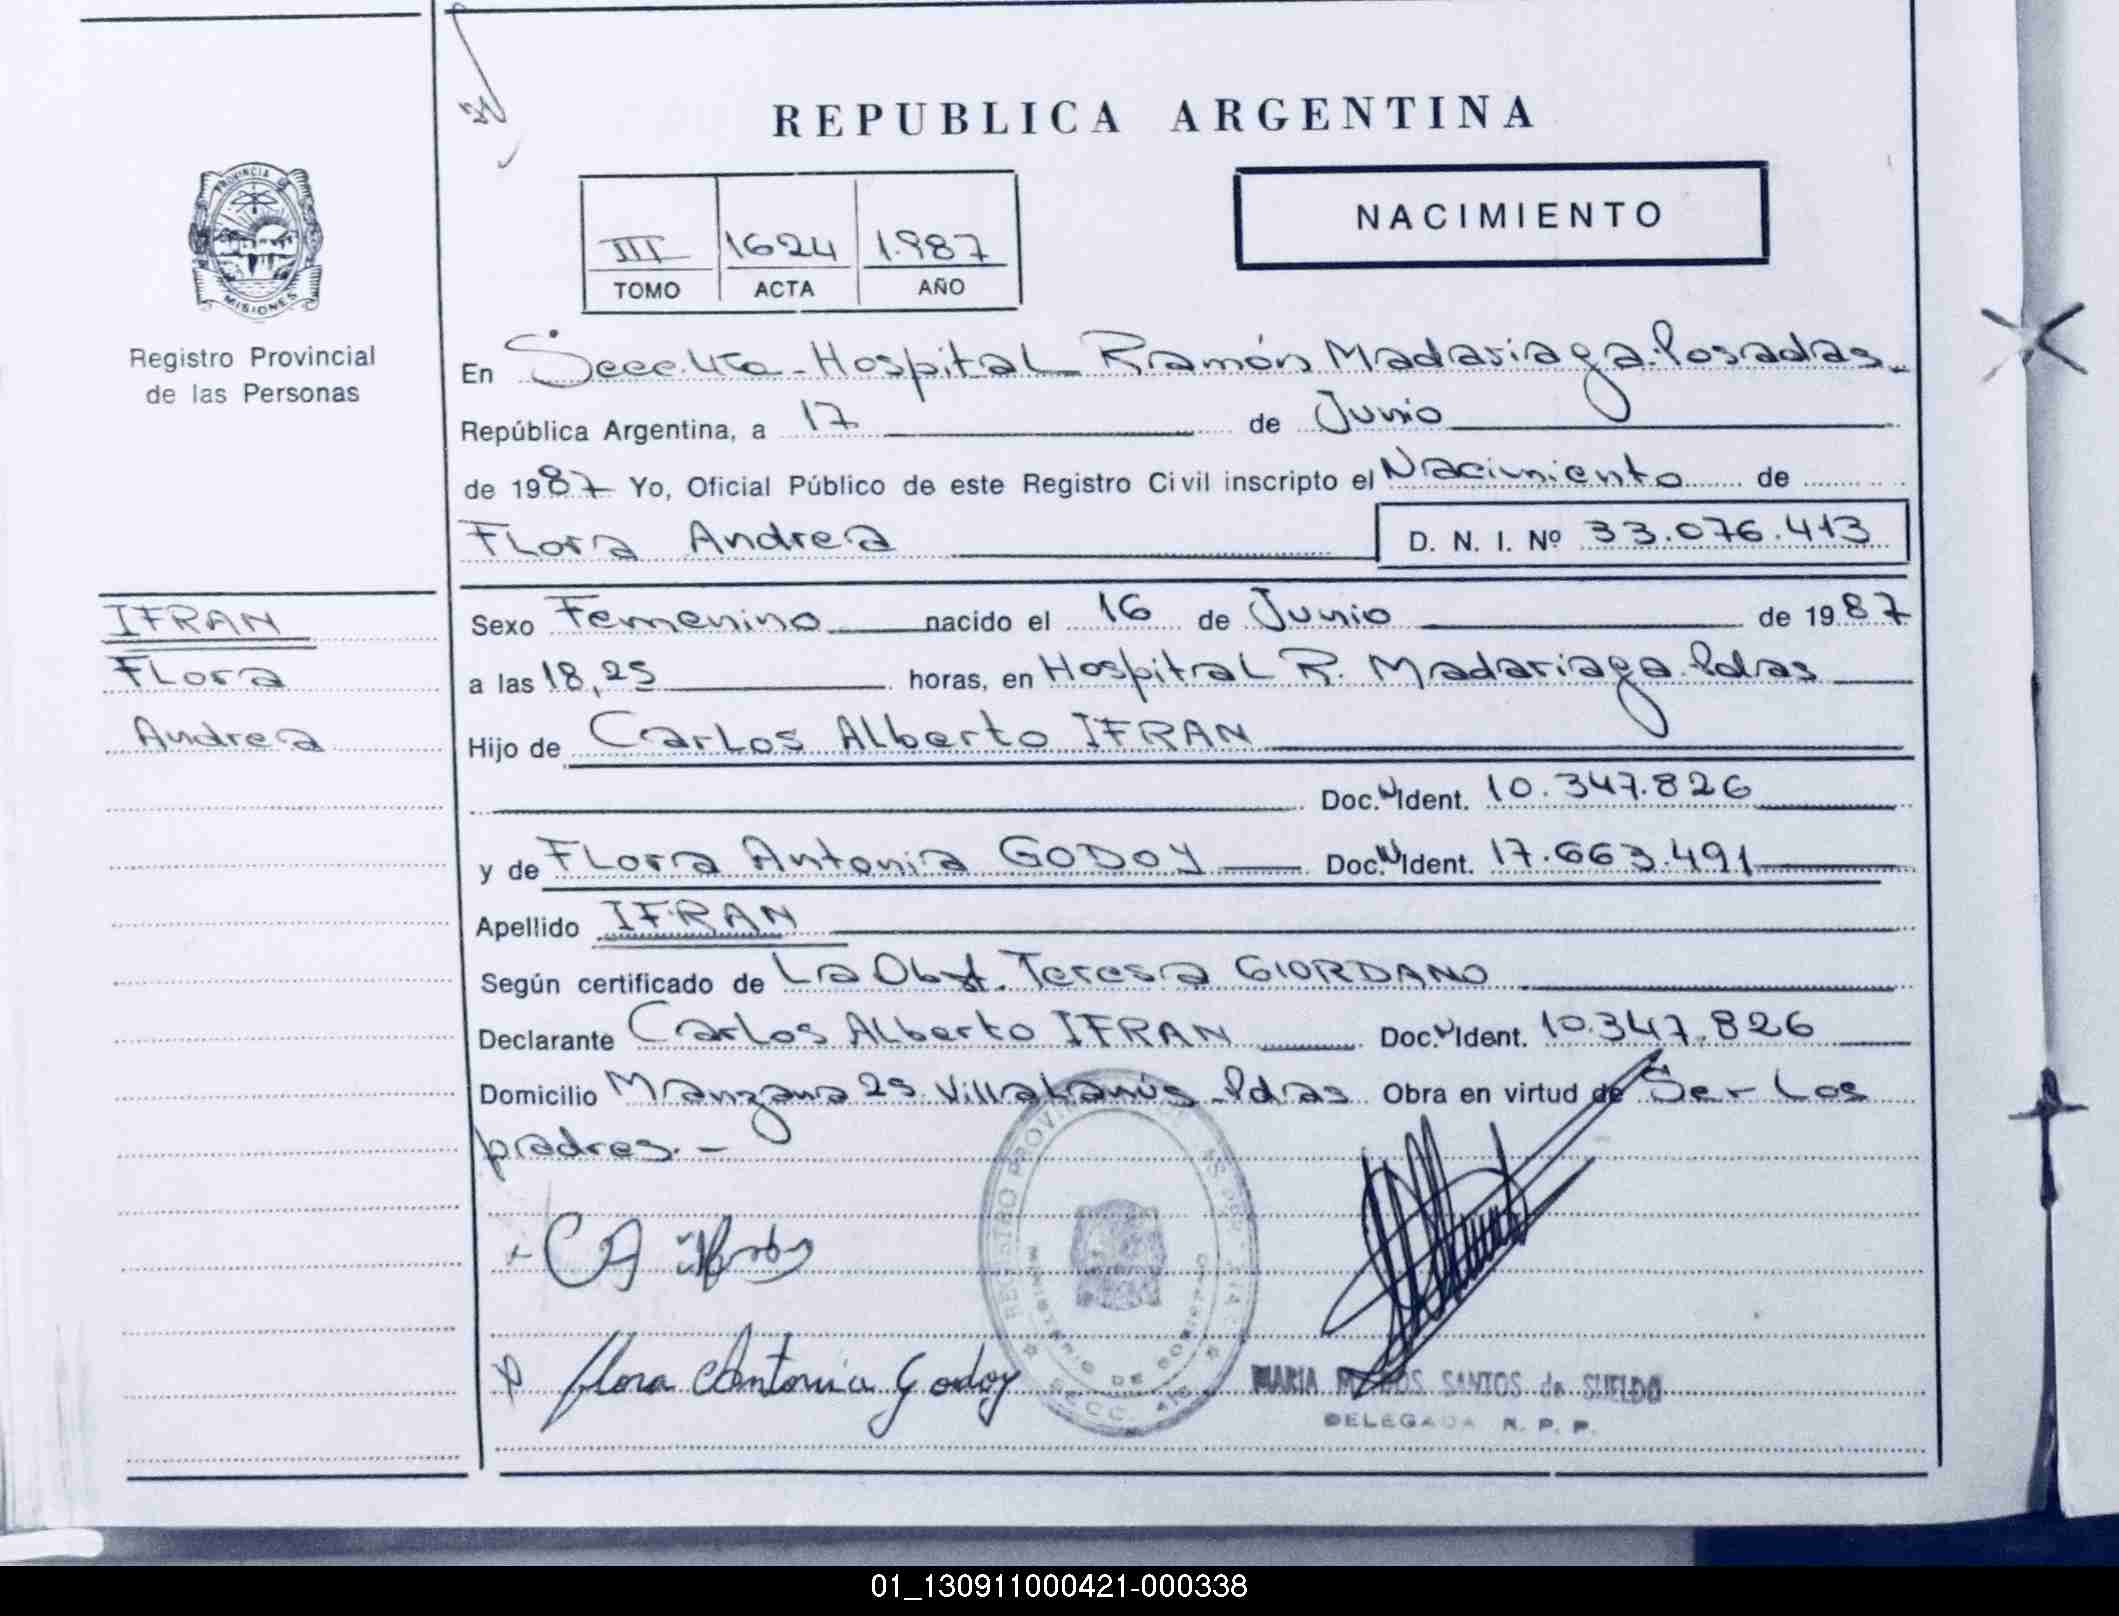 REPUBLICA ARGENTINA
PROVINCIA DE
MISIONES
Registro Provincial
de las Personas
NACIMIENTO
III 1624 1.987
TOMO ACTA AÑO
En Secc. 4ta - Hospital Ramón Madariaga. Posadas.-
República Argentina, a 17 de Junio
de 1987 Yo, Oficial Público de este Registro Civil inscripto el Nacimiento de
Flora Andrea D. N. I. Nº 33.076.413
IFRAN
Flora
Andrea
Sexo Femenino nacido el 16 de Junio de 1987
a las 18,25 horas, en Hospital R. Madariaga. Pdas
Hijo de Carlos Alberto IFRAN
Doc. N Ident. 10.347.826
y de Flora Antonia GODOY Doc. N Ident. 17.663.491
Apellido IFRAN
Según certificado de La Obst. Teresa GIORDANO
Declarante Carlos Alberto IFRAN Doc. N Ident. 10.347.826
Domicilio Manzana 25 Villa Lanús - Pdas Obra en virtud de Ser Los
padres. -
REGISTRO PROVINCIAL
MINISTERIO DE GOBIERNO
SECC. 4ta
CA
Flora Antonia Godoy
MARIA SANTOS de SUELDO
DELEGADA R. P. P.
01_130911000421-000338